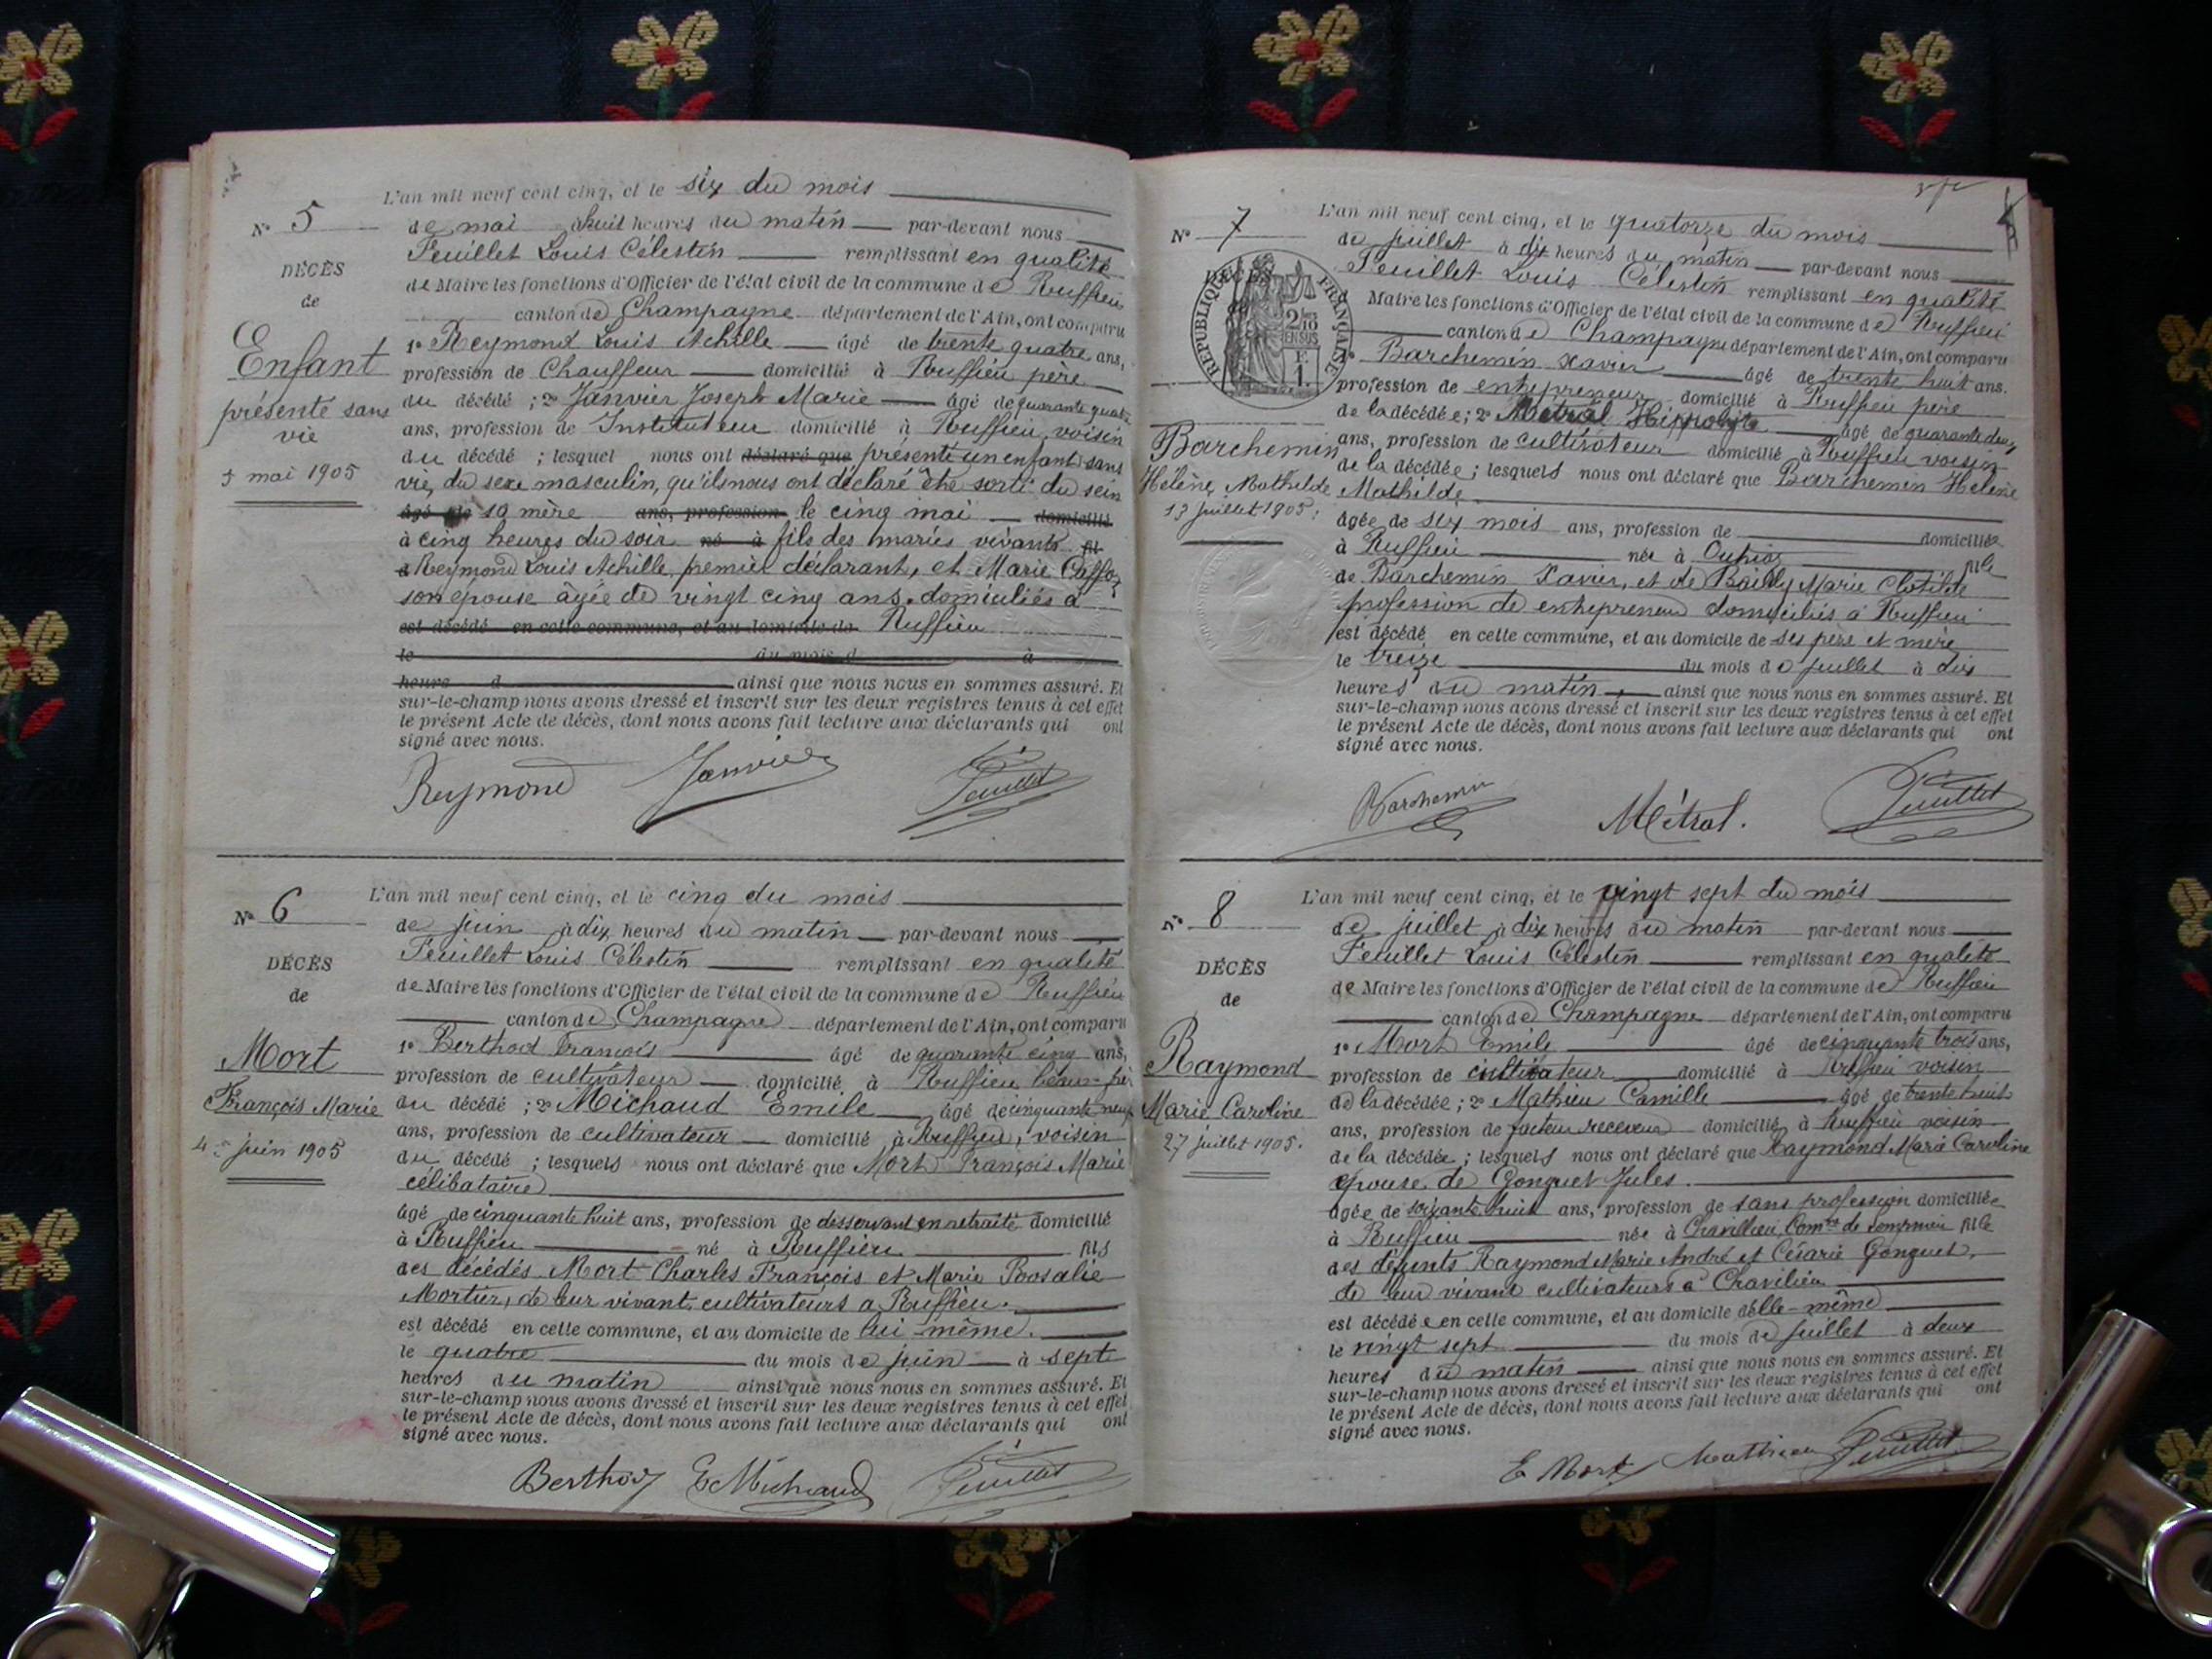 L'an mil neuf cent cinq, et le six du mois
N° 5 de mai à huit heures du matin par-devant nous
Feuillet Louis Célestin remplissant en qualité
DÉCÈS
de Maire les fonctions d'Officier de l'état civil de la commune de Ruffieu
de
canton de Champagne département de l'Ain, ont comparu
Enfant
1° Reymond Louis Achille âgé de trente quatre ans,
profession de Chauffeur domicilié à Ruffieu père
présenté sans
du décédé ; 2° Janvier Joseph Marie âgé de quarante quatre
vie
ans, profession de Instituteur domicilié à Ruffieu, voisin
du décédé ; lesquel nous ont déclaré que présenté un enfant sans
5 mai 1905
vie, du sexe masculin, qu'ils nous ont déclaré être sorti du sein
âgé de sa mère ans, profession le cinq mai domicilié
à cinq heures du soir né à fils des mariés vivants fil
d Reymond Louis Achille, premier déclarant, et Marie
son épouse âgée de vingt cinq ans. domiciliés à
est décédé en cette commune, et au domicile de Ruffieu
le du mois d à
heure d ainsi que nous nous en sommes assuré. Et
sur-le-champ nous avons dressé et inscrit sur les deux registres tenus à cet effet
le présent Acte de décès, dont nous avons fait lecture aux déclarants qui ont
signé avec nous.
Reymond Janvier Feuillet
L'an mil neuf cent cinq, et le cinq du mois
N° 6 de juin à dix heures du matin par-devant nous
Feuillet Louis Célestin remplissant en qualité
DÉCÈS
de Maire les fonctions d'Officier de l'état civil de la commune de Ruffieu
de
canton de Champagne département de l'Ain, ont comparu
Mort
1° Berthod François âgé de quarante cinq ans,
profession de cultivateur domicilié à Ruffieu beau-frère
François Marie
du décédé ; 2° Michaud Emile âgé de cinquante neuf
ans, profession de cultivateur domicilié à Ruffieu, voisin
4 juin 1905
du décédé ; lesquels nous ont déclaré que Mort François Marie
célibataire
âgé de cinquante huit ans, profession de desservant en retraite domicilié
à Ruffieu né à Ruffieu fils
des décédés Mort Charles François et Marie Roosalie
Mortier, de leur vivant cultivateurs a Ruffieu.
est décédé en cette commune, et au domicile de lui même.
le quatre du mois de juin à sept
heures du matin ainsi que nous nous en sommes assuré. Et
sur-le-champ nous avons dressé et inscrit sur les deux registres tenus à cet effet
le présent Acte de décès, dont nous avons fait lecture aux déclarants qui ont
signé avec nous.
Berthod E Michaud Feuillet
L'an mil neuf cent cinq, et le quatorze du mois
N° 7 de juillet à dix heures du matin par-devant nous
Feuillet Louis Célestin remplissant en qualité
Maire les fonctions d'Officier de l'état civil de la commune de Ruffieu
canton de Champagne département de l'Ain, ont comparu
RÉPUBLIQUE FRANÇAISE
2/10 EN SUS
F. 1.
1° Barchemin Xavier âgé de trente huit ans.
profession de entrepreneur domicilié à Ruffieu père
de la décédée ; 2° Métral Hippolyte âgé de quarante deux
Barchemin
ans, profession de cultivateur domicilié à Ruffieu voisin
de la décédée ; lesquels nous ont déclaré que Barchemin Helène
Hélène Mathilde
Mathilde
13 juillet 1905
âgée de six mois ans, profession de domiciliée
à Ruffieu née à fille
de Barchemin Xavier, et de Bailly Marie Clotilde
profession de entrepreneur domiciliés à Ruffieu
est décédé en cette commune, et au domicile de ses père et mère
le treize du mois de juillet à dix
heures du matin ainsi que nous nous en sommes assuré. Et
sur-le-champ nous avons dressé et inscrit sur les deux registres tenus à cet effet
le présent Acte de décès, dont nous avons fait lecture aux déclarants qui ont
signé avec nous.
Barchemin Métral. Feuillet
L'an mil neuf cent cinq, et le vingt sept du mois
N° 8 de juillet à dix heures du matin par-devant nous
Feuillet Louis Célestin remplissant en qualité
DÉCÈS
de Maire les fonctions d'Officier de l'état civil de la commune de Ruffieu
de
canton de Champagne département de l'Ain, ont comparu
1° Mort Emile âgé de cinquante trois ans,
Raymond
profession de cultivateur domicilié à Ruffieu voisin
Marie Caroline
de la décédée ; 2° Mathieu Camille âgé de trente huit
ans, profession de facteur receveur domicilié à Ruffieu voisin
27 juillet 1905.
de la décédée ; lesquels nous ont déclaré que Raymond Marie Caroline
épouse de Gonguet Jules.
âgée de soixante huit ans, profession de sans profession domiciliée
à Ruffieu née à Chavillieu, Com de fille
des défunts Raymond Marie André et Césarie Gonguet,
de leur vivant cultivateurs à Chavilieu
est décédée en cette commune, et au domicile d'elle-même
le vingt sept du mois de juillet à deux
heures du matin ainsi que nous nous en sommes assuré. Et
sur-le-champ nous avons dressé et inscrit sur les deux registres tenus à cet effet
le présent Acte de décès, dont nous avons fait lecture aux déclarants qui ont
signé avec nous.
E Mort Mathieu Feuillet